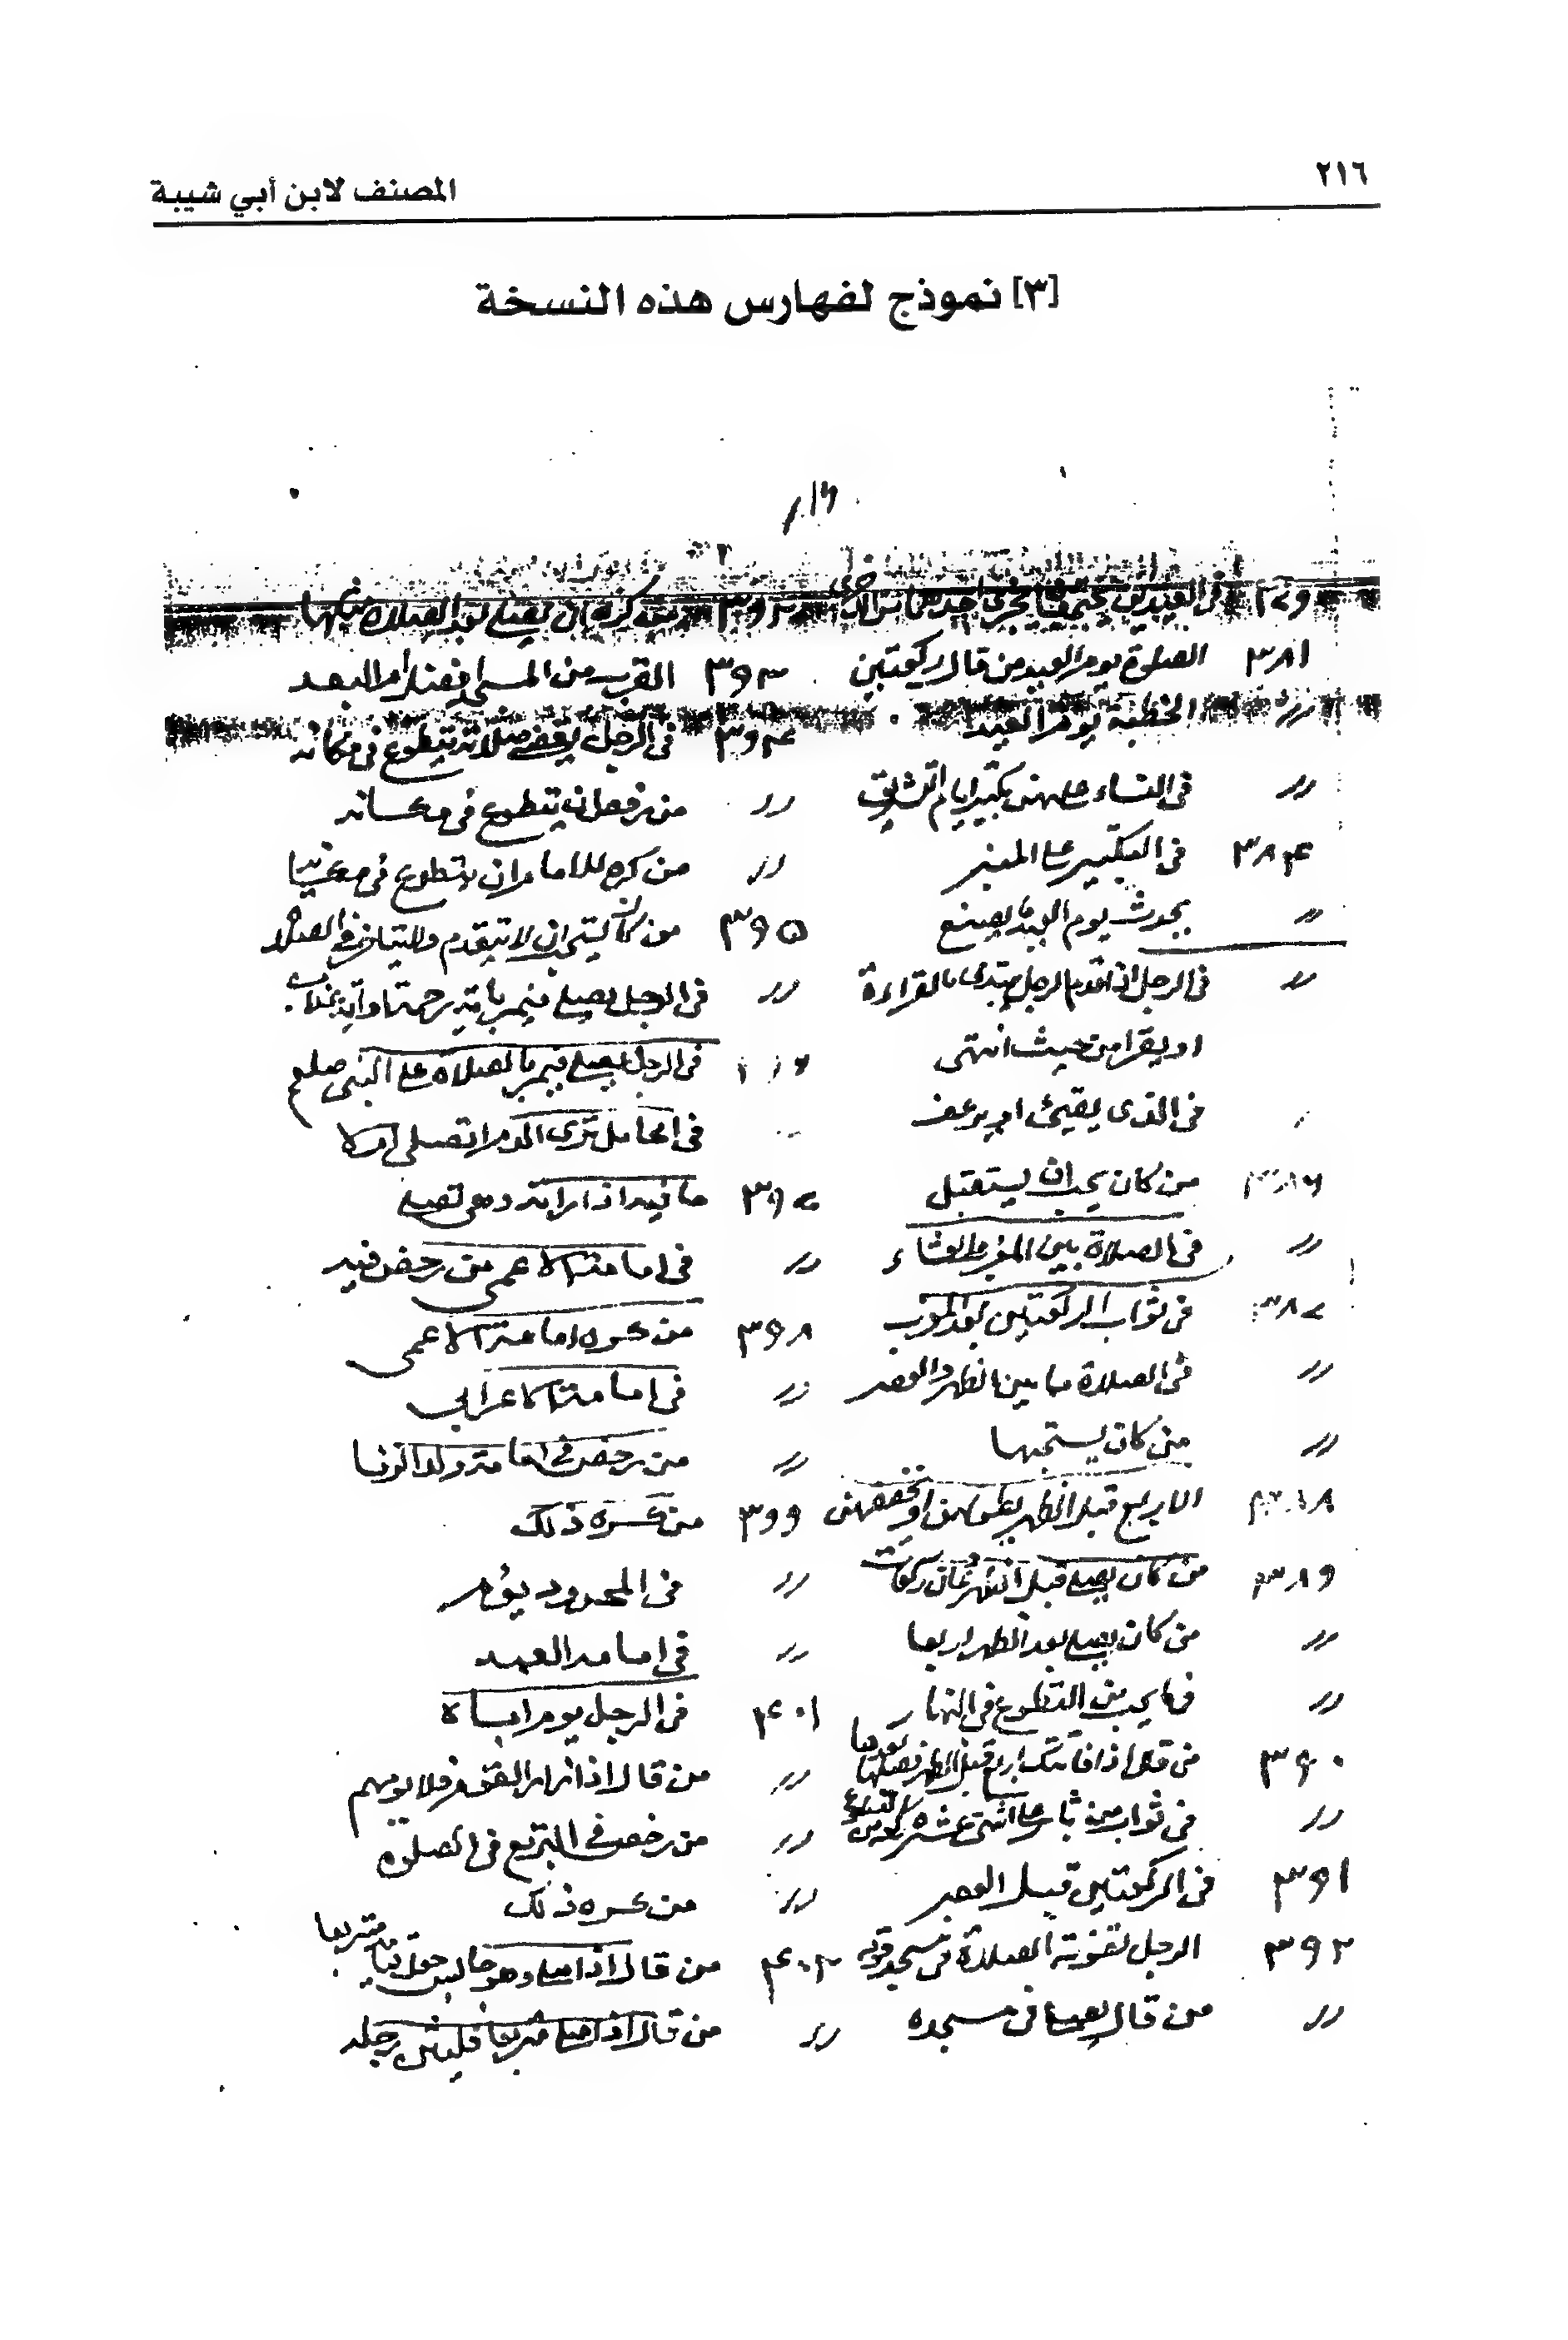 ٢١٦
المصنف لابن أبي شيبة
[٣] نموذج لفهارس هذه النسخة
في العيدين يجتمعان يجزئ احدهما من الاخرى
٣٨١ الصلوة يوم العيد من قال ركعتين
〃 الخطبة يوم العيد
〃 في النساء عليهن تكبير ايام التشريق
٣٨٤ في التكبير على المنبر
〃 يحدث يوم العيد ما يصنع
〃 في الرجل اذا قدم الرجل يبتدى بالقراءة
او يقرا من حيث انتهى
في الذى يقيئ او يرعف
٣٨٦ من كان يحب ان يستقبل
〃 في الصلاة بين المغرب والعشاء
٣٨٧ في ثواب الركعتين بعد المغرب
〃 في الصلاة ما بين الظهر والعصر
〃 من كان يستحبها
٣٨٨ الاربع قبل الظهر يطولهن او يخففهن
٣٨٩ من كان يصلي قبل الظهر ثمان ركعات
〃 من كان يصلي بعد الظهر اربعا
〃 فيما يحب من التطوع في النهار
٣٩٠ من قال اذا فاتتك اربع قبل الظهر فصلها بعدها
〃 في ثواب من ثابر على اثنتي عشرة ركعة من التطوع
٣٩١ في الركعتين قبل العصر
٣٩٢ الرجل تفوته الصلاة في مسجد قومه
〃 من قال يصليها في مسجده
من كره ان يصلي بعد الصلاة مثلها
٣٩٣ القرب من المسجد افضل ام البعد
٣٩٤ في الرجل يقضي صلاته يتطوع في مكانه
〃 من رخص ان يتطوع في مكانه
〃 من كره للامام ان يتطوع في مكانه
٣٩٥ من كان يستحب ان لا يتقدم ولا يتاخر في الصلاة
〃 في الرجل يصلي فيمر باية رحمة او اية عذاب
في الرجل يصلي فيمر بالصلاة على النبي صلعم
في الحامل ترى الدم اتصلي ام لا
٣٩٧ ما فيه اذا راته وهي تصلي
〃 في امامة الاعمى من رخص فيه
٣٩٨ من كره امامة الاعمى
〃 في امامة الاعرابي
〃 من رخص في امامة ولد الزنا
٣٩٩ من كره ذلك
〃 في المحدود يؤم
〃 في امامة العبد
٤٠١ في الرجل يوم اباه
〃 من قال اذا زار القوم فلا يومهم
〃 من رخص في التربع في الصلوة
〃 من كره ذلك
٤٠٢ من قال اذا صلى وهو جالس جعل قيامه متربعا
〃 من قال اذا صلى متربعا فليثن رجله